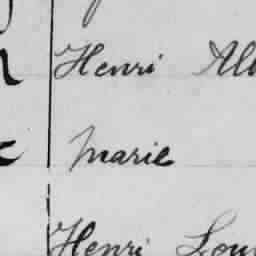 Henri Al
Marie
Henri Lou